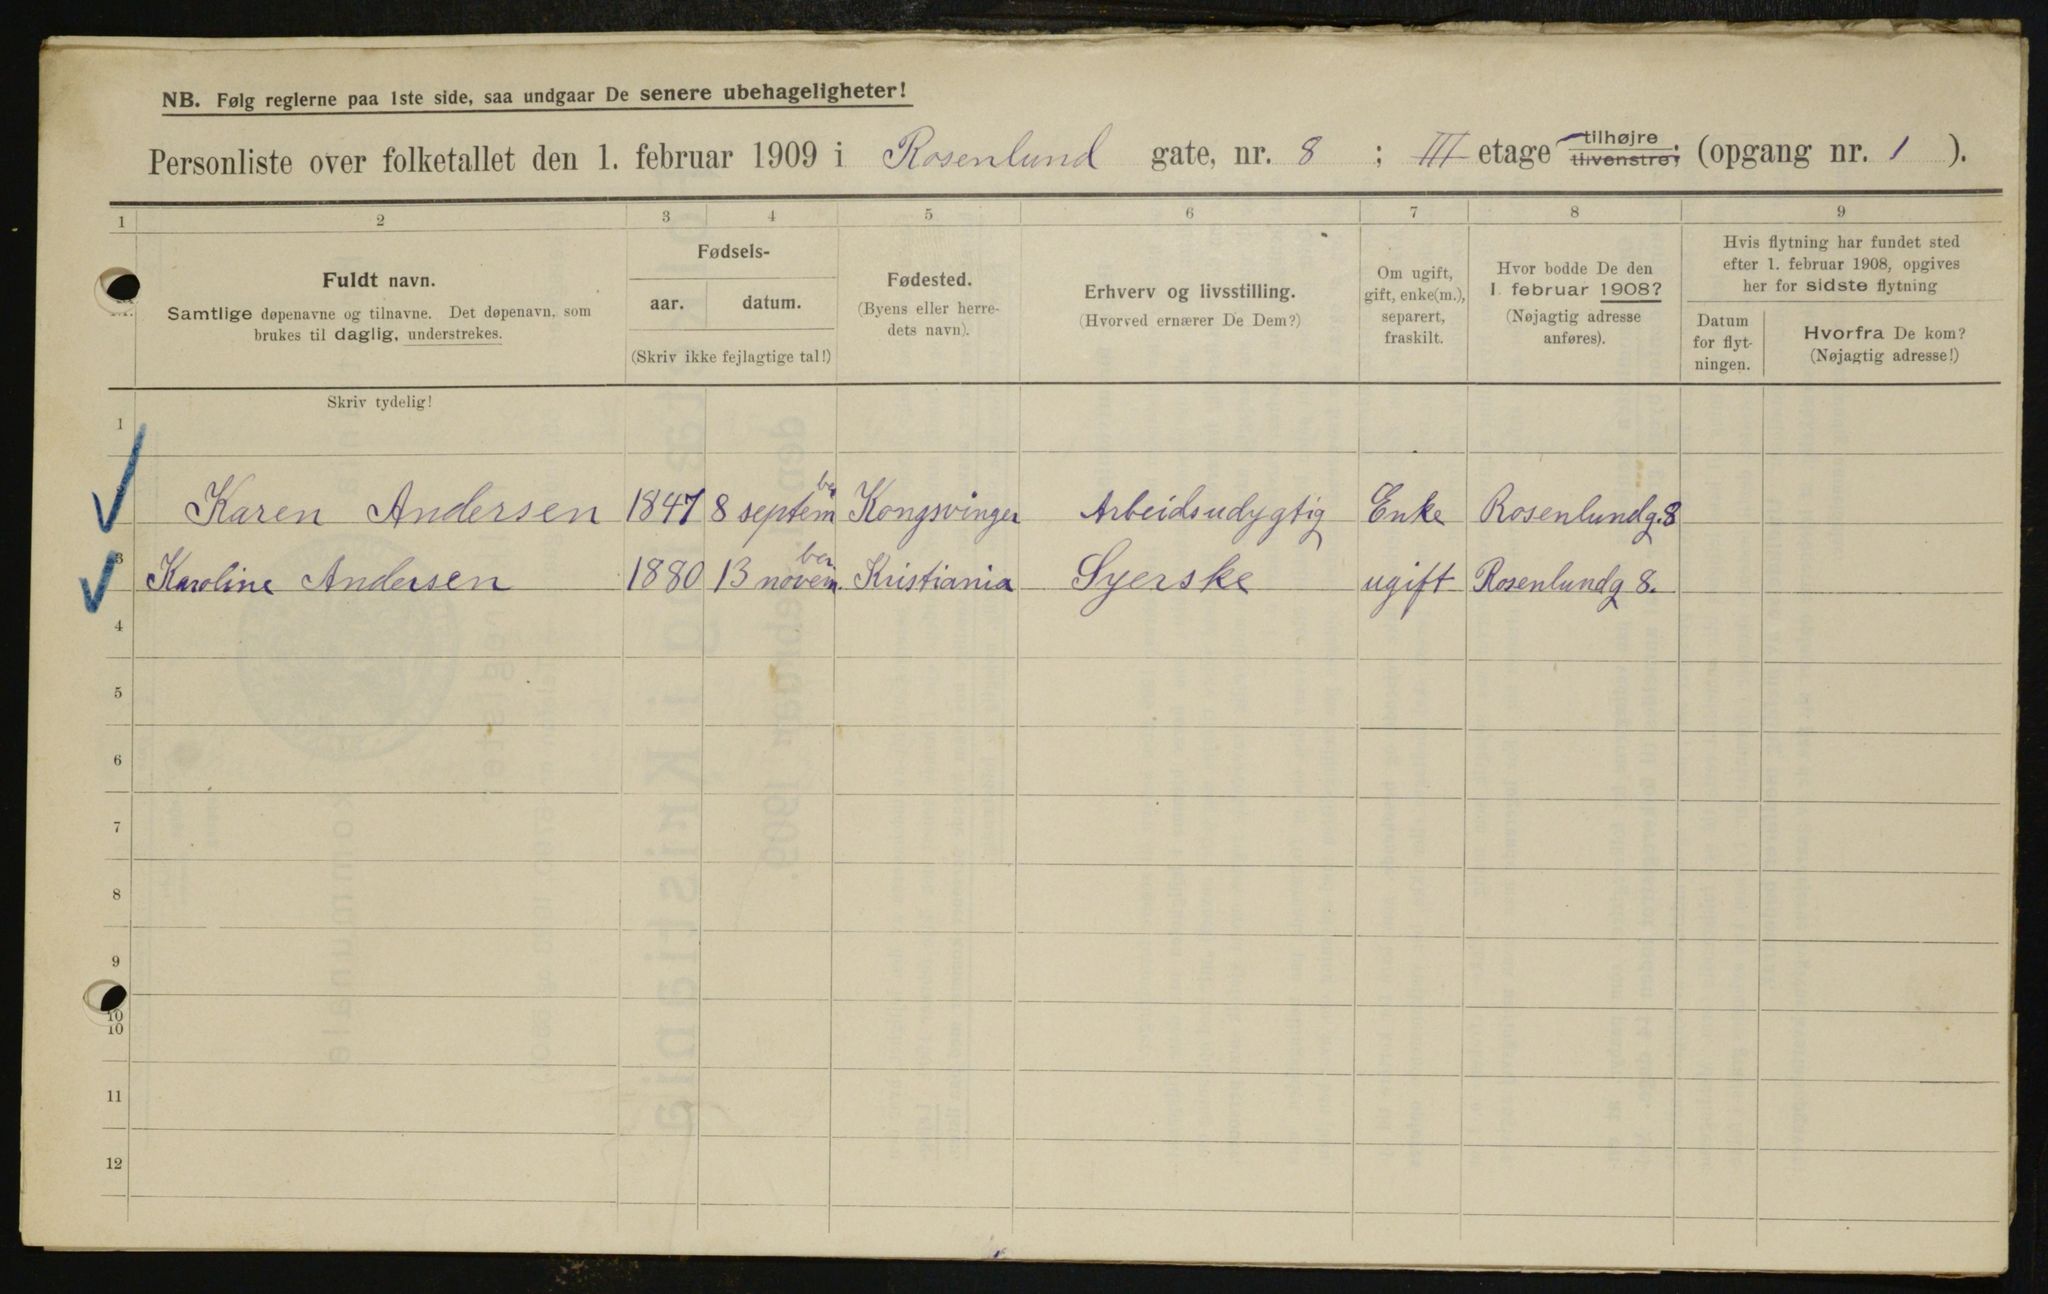 NB. Følg reglerne paa 1ste side, saa undgaar De senere ubehageligheter!
Personliste over folketallet den 1. februar 1909 i Rosenlund gate, nr. 8 ; III etage tilhøjre tilvenstre; (opgang nr. 1 ).
1 2 3 4 5 6 7 8 9
Fuldt navn.
Samtlige døpenavne og tilnavne. Det døpenavn, som
brukes til daglig, understrekes.
Fødsels-
aar. datum.
(Skriv ikke fejlagtige tal!)
Fødested.
(Byens eller herre-
dets navn).
Erhverv og livsstilling.
(Hvorved ernærer De Dem?)
Om ugift,
gift, enke(m.),
separert,
fraskilt.
Hvor bodde De den
1. februar 1908?
(Nøjagtig adresse
anføres).
Hvis flytning har fundet sted
efter 1. februar 1908, opgives
her for sidste flytning
Datum
for flyt-
ningen.
Hvorfra De kom?
(Nøjagtig adresse!)
Skriv tydelig!
1
Karen Andersen 1847 8 september Kongsvinger Arbeidsudygtig Enke Rosenlundg. 8
3 Karoline Andersen 1880 13 november. Kristiania Syerske ugift Rosenlundg 8.
4
5
6
7
8
9
10
10
11
12